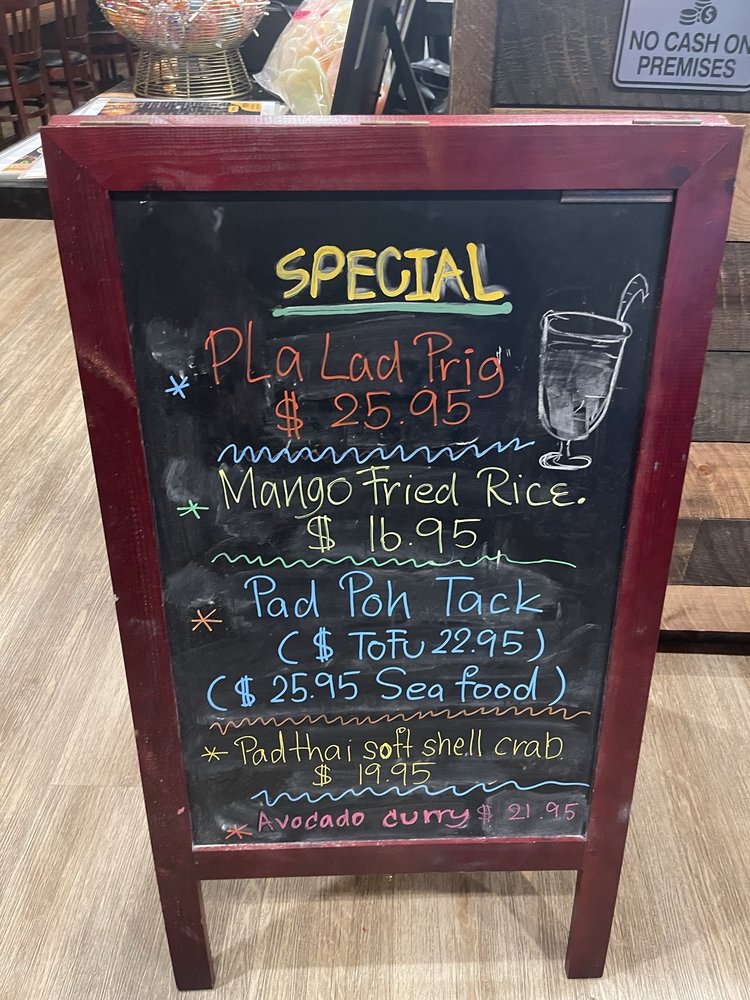 NO CASH ON
PREMISES
SPECIAL
* PLa Lad Prig
$ 25.95
* Mango Fried Rice.
$ 16.95
* Pad Poh Tack
( $ ToFu 22.95 )
( $ 25.95 Sea food )
* Padthai soft shell crab
$ 19.95
* Avocado curry $ 21.95